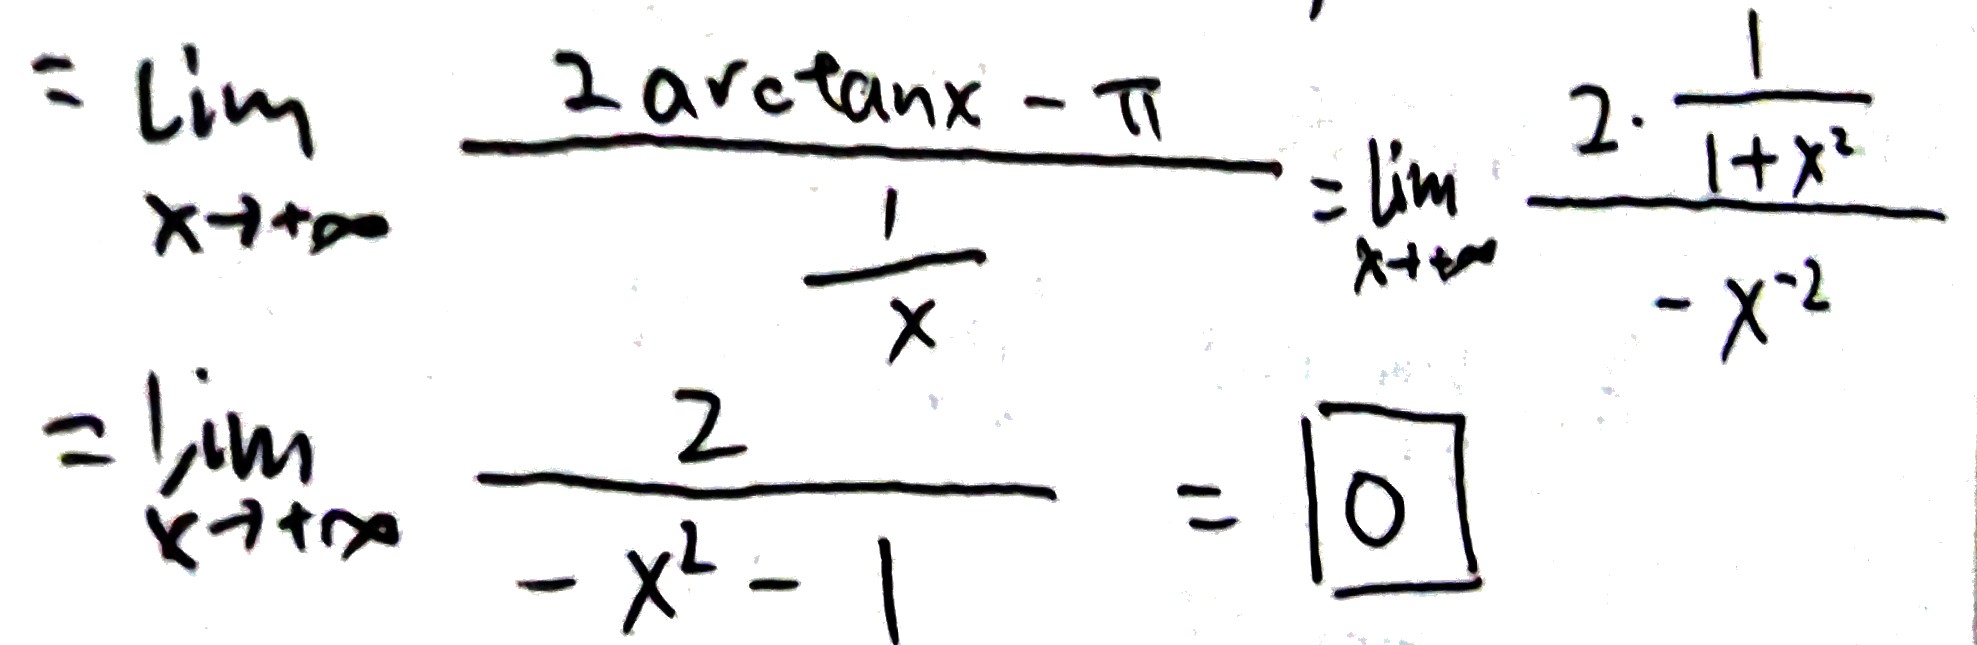 = lim_{x→+∞} \frac{2 arctanx - π}{\frac{1}{x}} = lim_{x→+∞} \frac{2 · \frac{1}{1+x^2}}{-x^{-2}}
= lim_{x→+∞} \frac{2}{-x^2 - 1} = 0